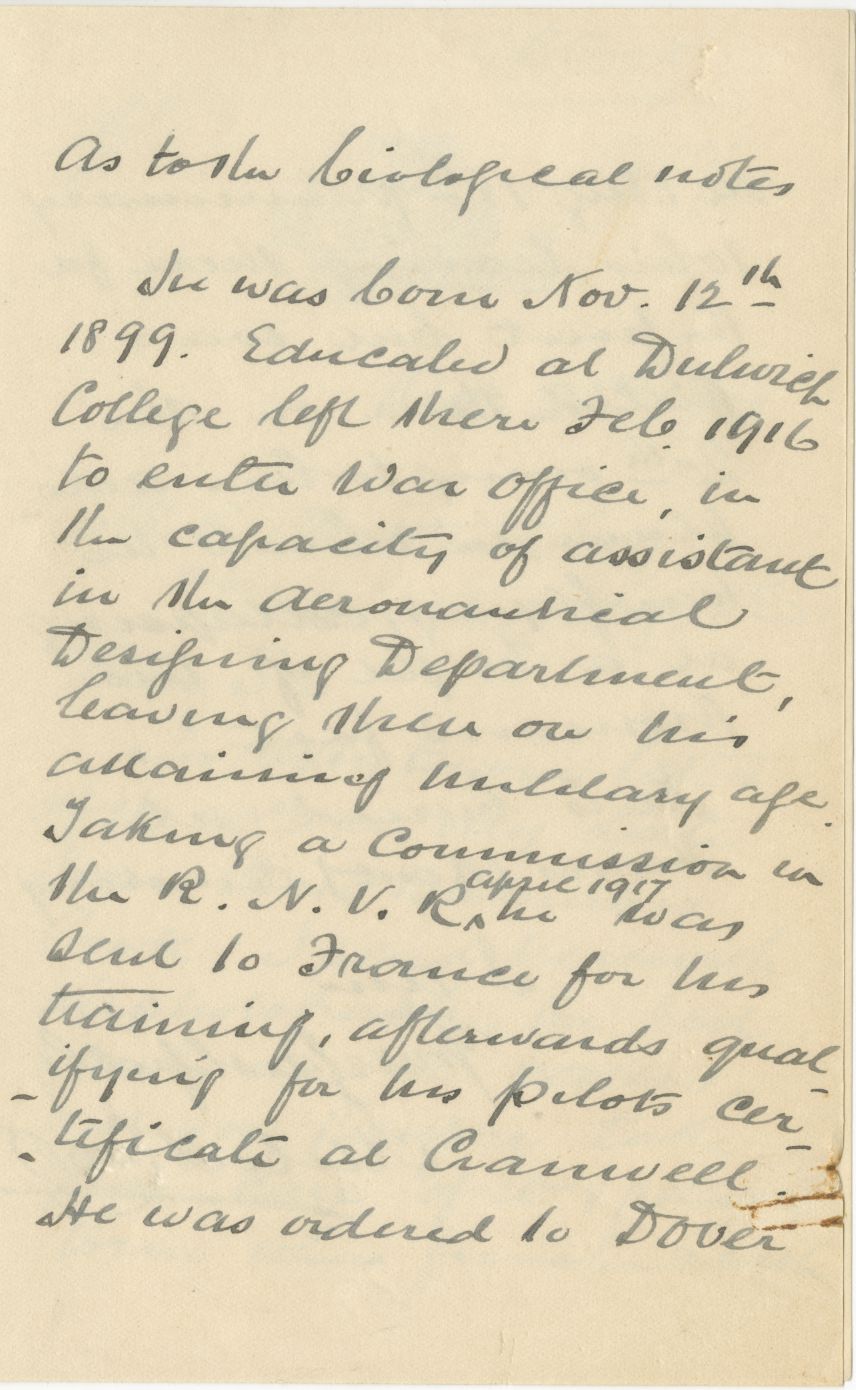 As to the biological notes
He was born Nov. 12th
1899. Educated at Dulwich
College left there Feb. 1916
to enter War Office, in
the capacity of assistant
in the Aeronautical
Designing Department,
leaving there on his
attaining military age.
Taking a Commission in
the R. N. V. R. ^april 1917 he was
sent to France for his
training, afterwards qual-
-ifying for his pilots cer-
-tificate at Cranwell.
He was ordered to Dover